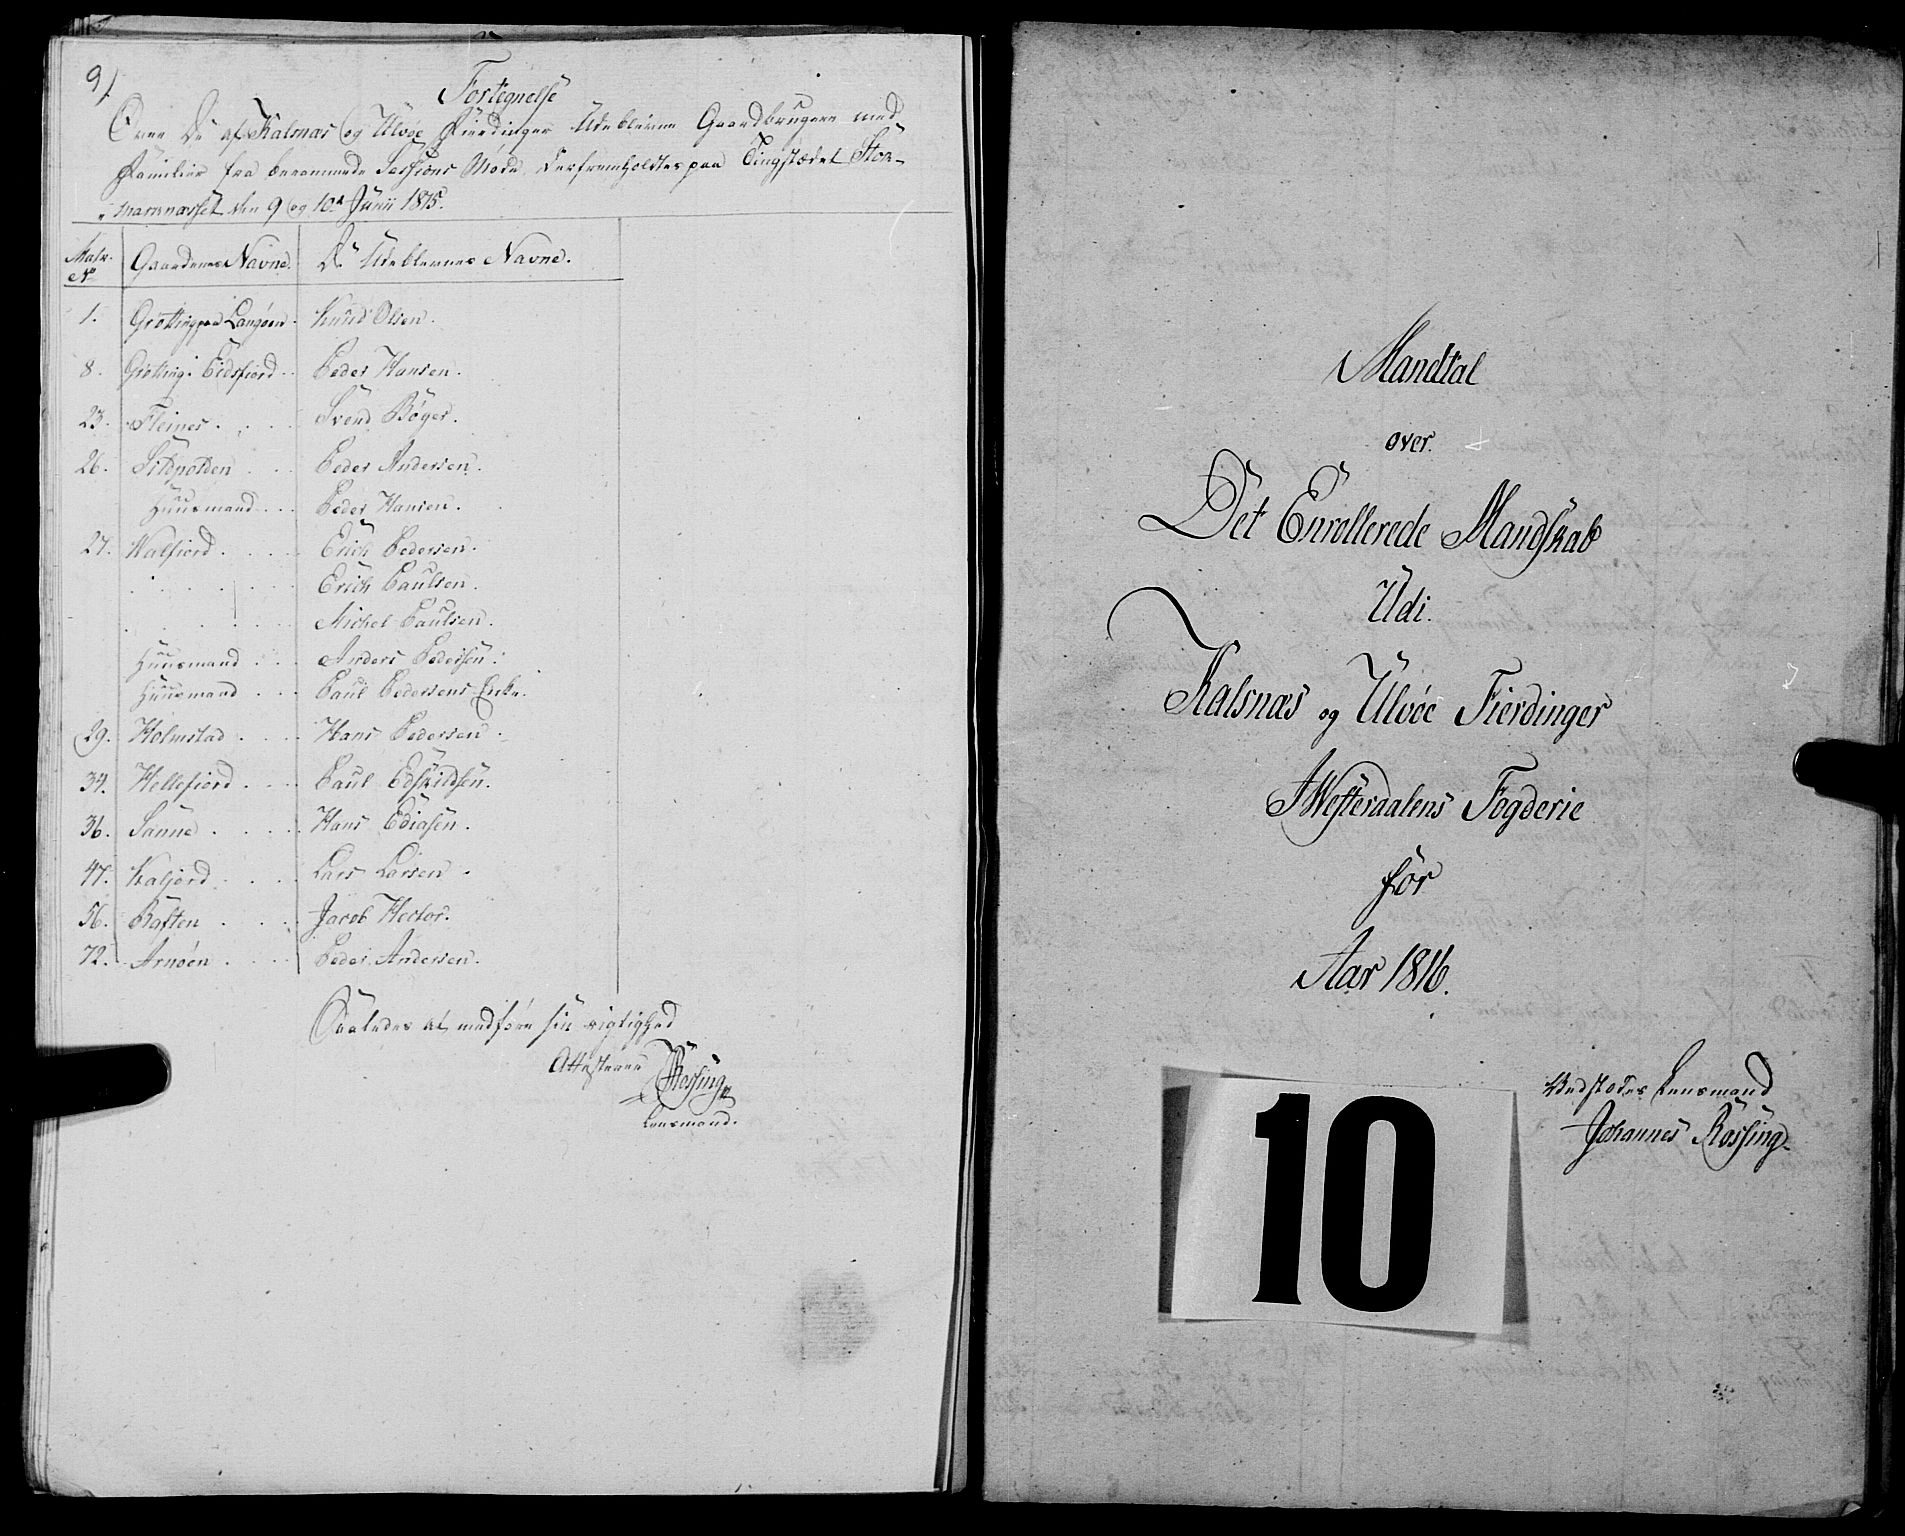 9/
Fortegnelse
Over De af Kalsnæs og Ulvøe Fierdinger Udeblevne Gaardbrugere med
Familier fra berammede Sessions Møde, Derfremholdtes paa Tingstædet Stok-
marknæsset den 9 og 10d Junii 1815.
Matr. No Gaardenes Navne. De Udeblevnes Navne.
1. Grøtting paa Langøen. Knud Olsen.
8. Grøtting i Eidsfiord. Peder Hansen.
23. Fleines. Svend Bøger.
26. Sildpolden Peder Andersen.
Huusmand Peder Hansen.
27. Walfiord. Erich Pedersen.
Erich Paulsen.
Michel Paulsen.
Huusmand Anders Pedersen.
Huusmand Paul Pedersens Enke.
29. Holmstad Hans Pedersen.
34. Hellefiord. Paul Edskildsen.
36. Sanne Hans Ediasen.
47. Kaljord Lars Larsen.
56. Raften Jacob Hector.
72. Arnøen Peder Andersen.
Saaledes at medføre sin rigtighed
Attesterer JRøssing
Lensmand.
Mandtal
over
Det Enrollerede Mandskab
Udi
Kalsnæs og Ulvøe Fierdinger
I Westeraalens Fogderie
for
Aar 1816.
Bedstodes Lensmand
Johannes Røssing
10